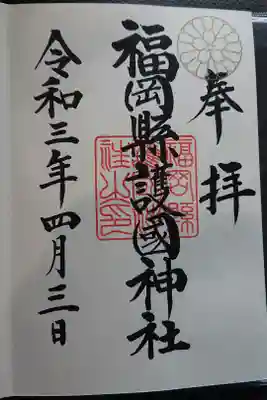 奉拝
福岡縣護國神社
令和三年四月三日